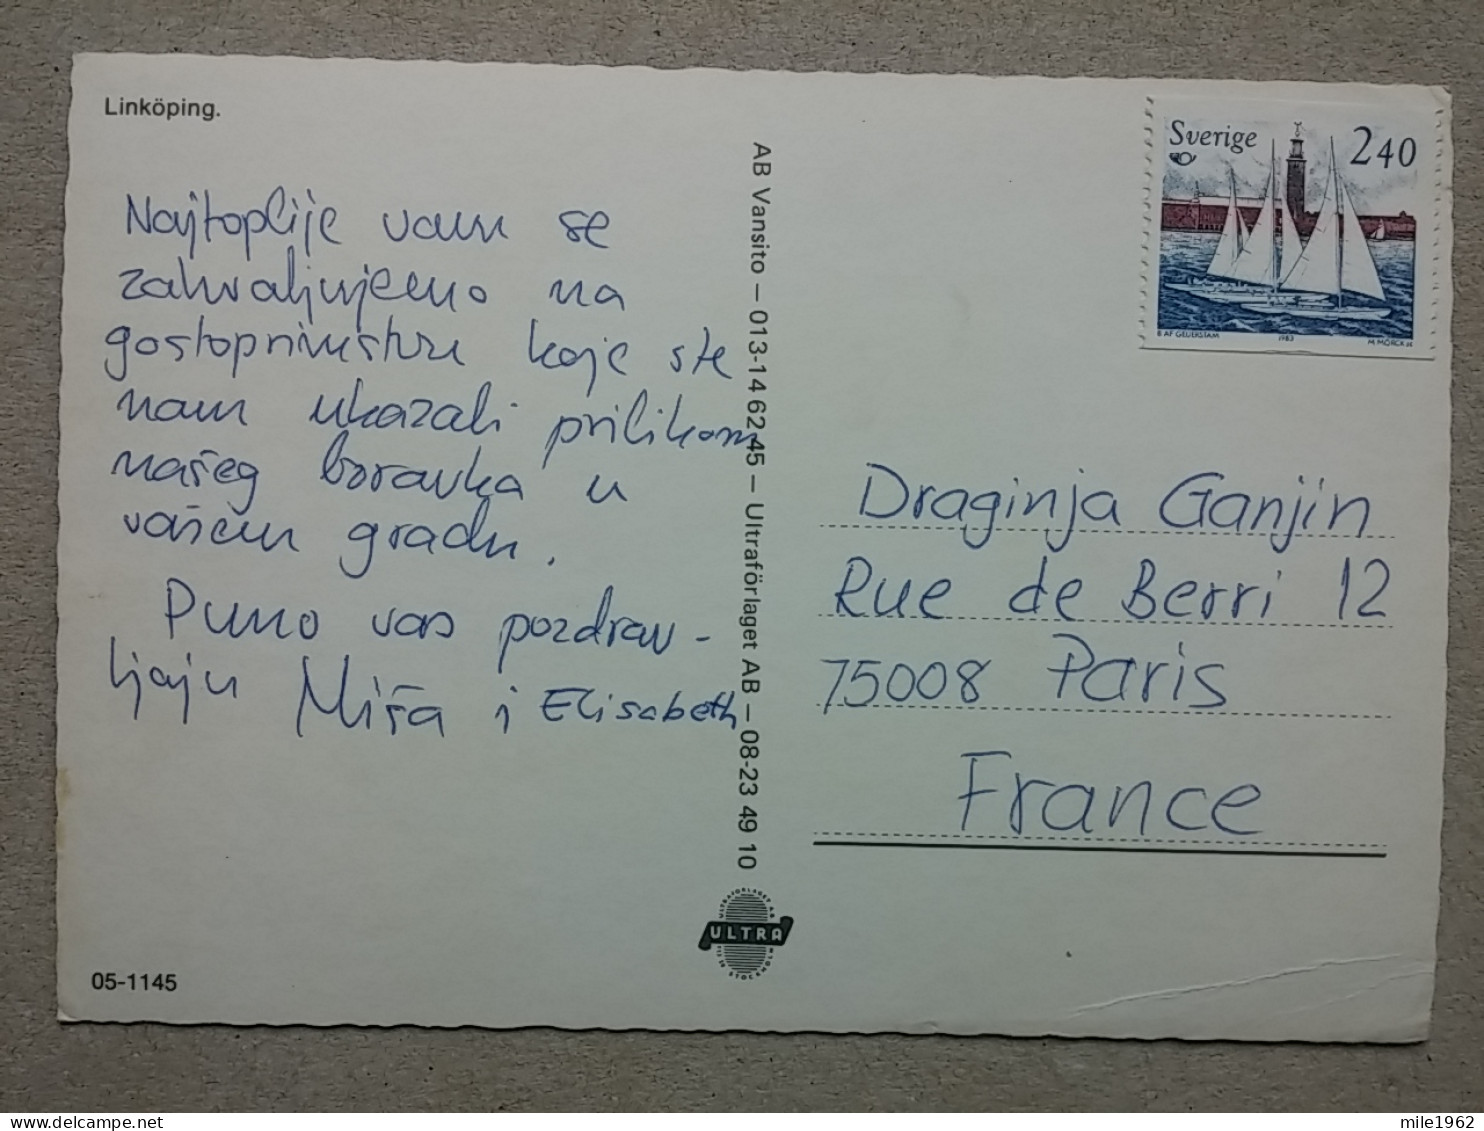 Linköping.
Najtoplije vam se
zahvaljujemo na
gostoprimstvu koje ste
nam ukazali prilikom
našeg boravka u
vašem gradu.
Puno vas pozdrav-
ljaju Miša i Elisabeth
05-1145
AB Vansito – 013-14 62 45 – Ultraförlaget AB – 08-23 49 10
ULTRA
Sverige 240
B AF GEIJERSTAM 1983 M MÖRCK
Draginja Ganjin
Rue de Berri 12
75008 Paris
France
mile1962